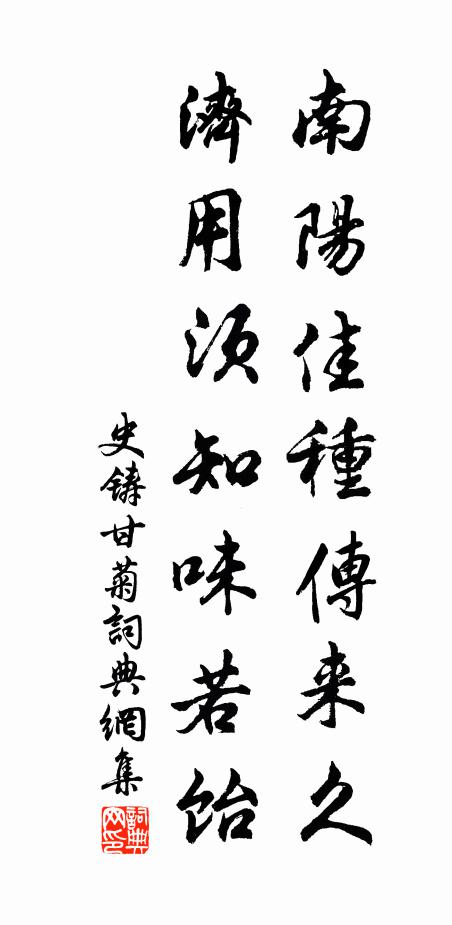 南陽佳種傳来久
濟用須知味若飴
史鑄甘菊詞典網集
詞典网印